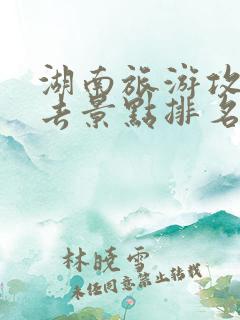 湖南旅游攻
去景點排名
林晓雪
未经同意禁止转载